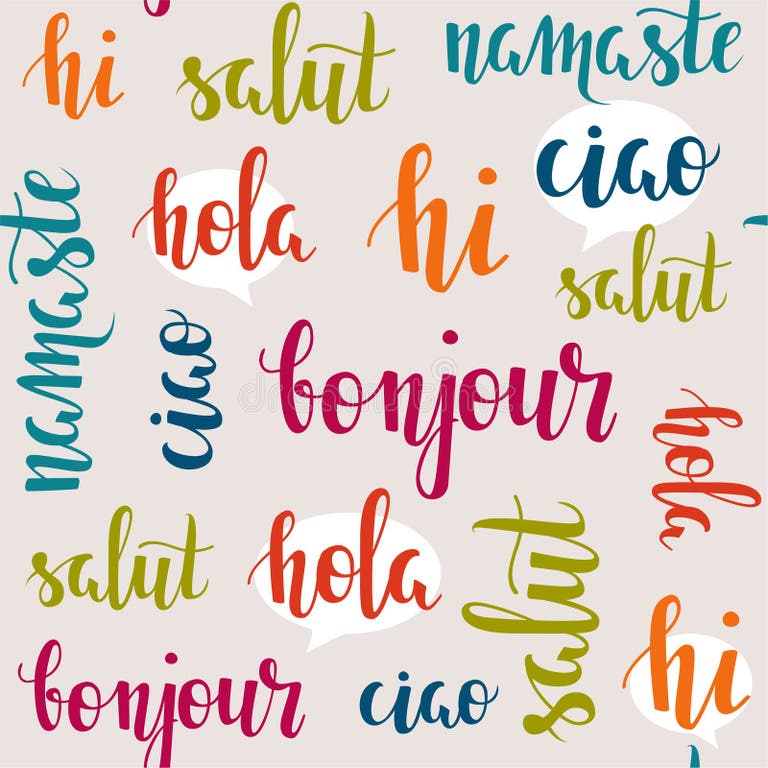 hi
salut
namaste
ciao
hola
hi
namaste
salut
ciao
bonjour
hola
salut
hola
salut
hi
bonjour
ciao